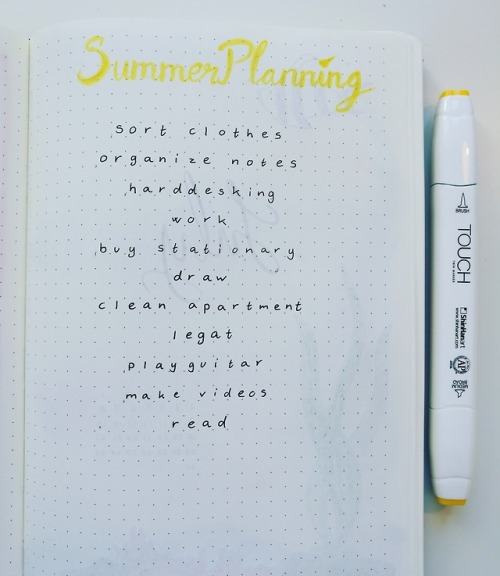 Summer Planning
sort clothes
organize notes
harddesking
work
buy stationary
draw
clean apartment
legat
play guitar
make videos
read
BRUSH
TOUCH
ShinHanart